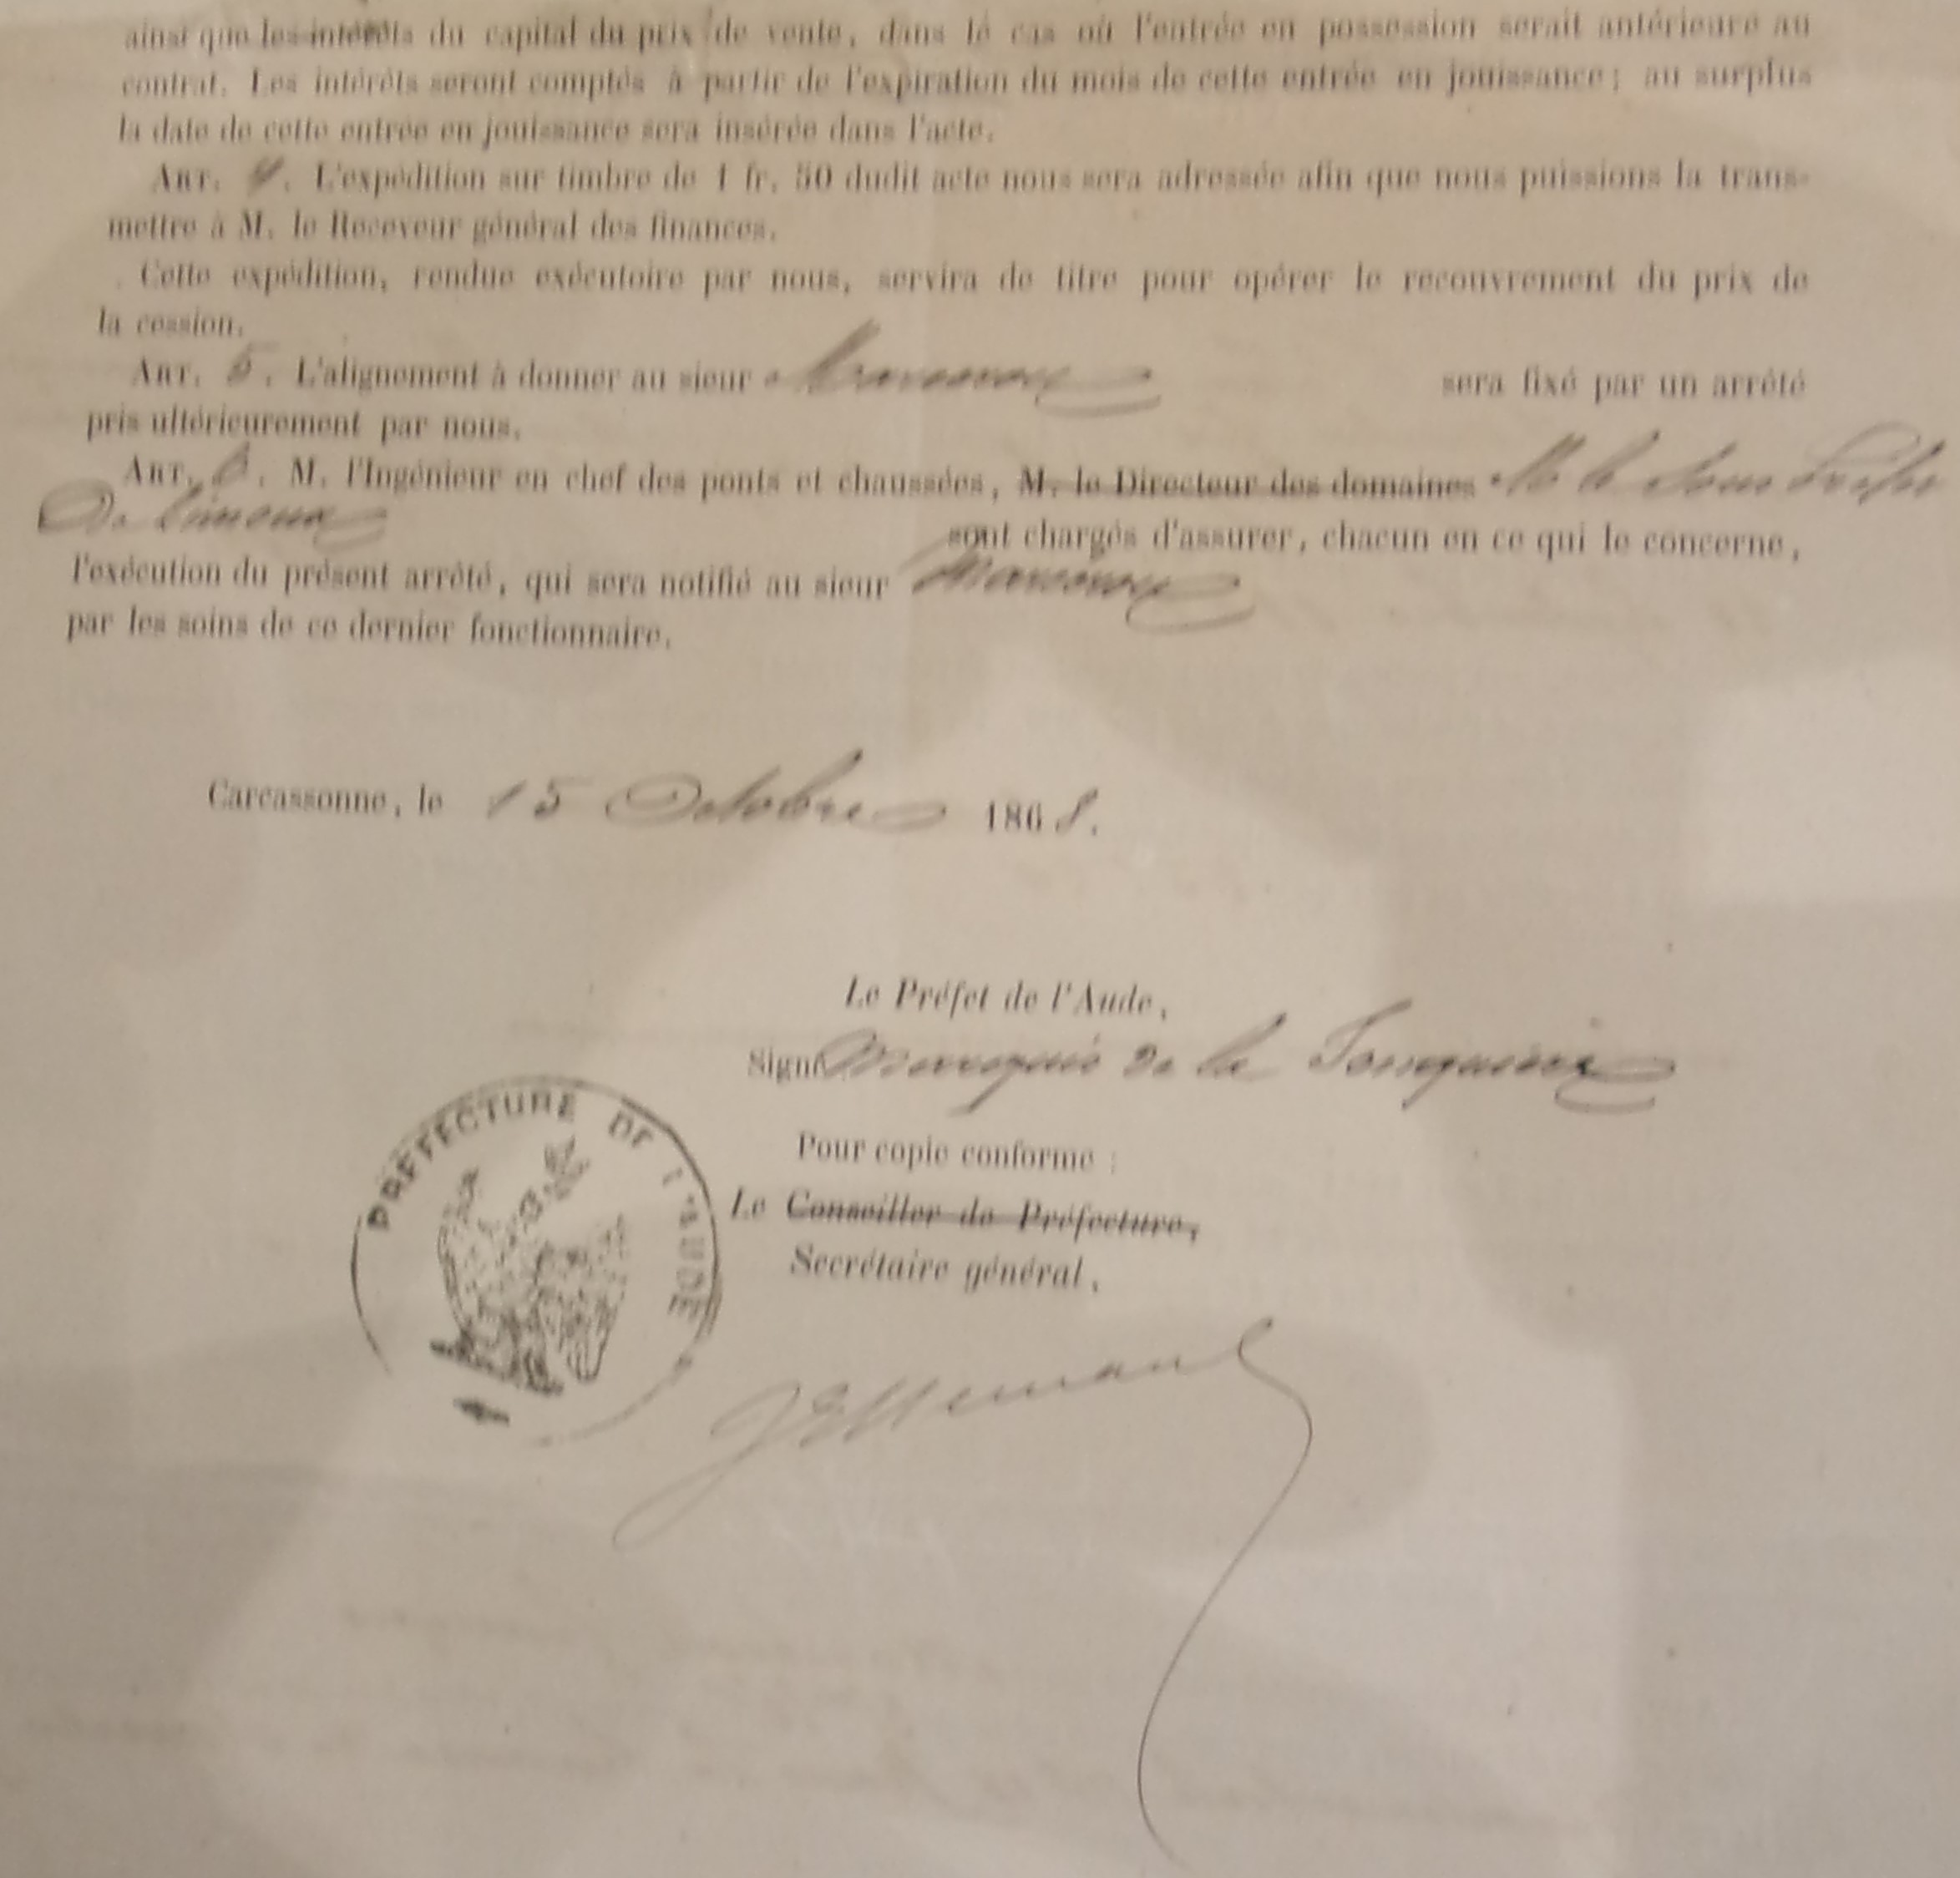 ainsi que les intérêts du capital du prix de vente, dans le cas où l'entrée en possession serait antérieure au
contrat. Les intérêts seront comptés à partir de l'expiration du mois de cette entrée en jouissance; au surplus
la date de cette entrée en jouissance sera insérée dans l'acte.
ART. 4. L'expédition sur timbre de 1 fr. 50 dudit acte nous sera adressée afin que nous puissions la trans-
mettre à M. le Receveur général des finances.
Cette expédition, rendue exécutoire par nous, servira de titre pour opérer le recouvrement du prix de
la cession.
ART. 5. L'alignement à donner au sieur sera fixé par un arrêté
pris ultérieurement par nous.
ART. 6. M. l'Ingénieur en chef des ponts et chaussées, M. le Directeur des domaines M. le Sous Préfet
De Limoux sont chargés d'assurer, chacun en ce qui le concerne,
l'exécution du présent arrêté, qui sera notifié au sieur
par les soins de ce dernier fonctionnaire.
Carcassonne, le 15 Octobre 1868.
Le Préfet de l'Aude,
Signé Marquis de la Jonquière
Pour copie conforme :
Le Conseiller de Préfecture,
Secrétaire général,
PRÉFECTURE DE L'AUDE